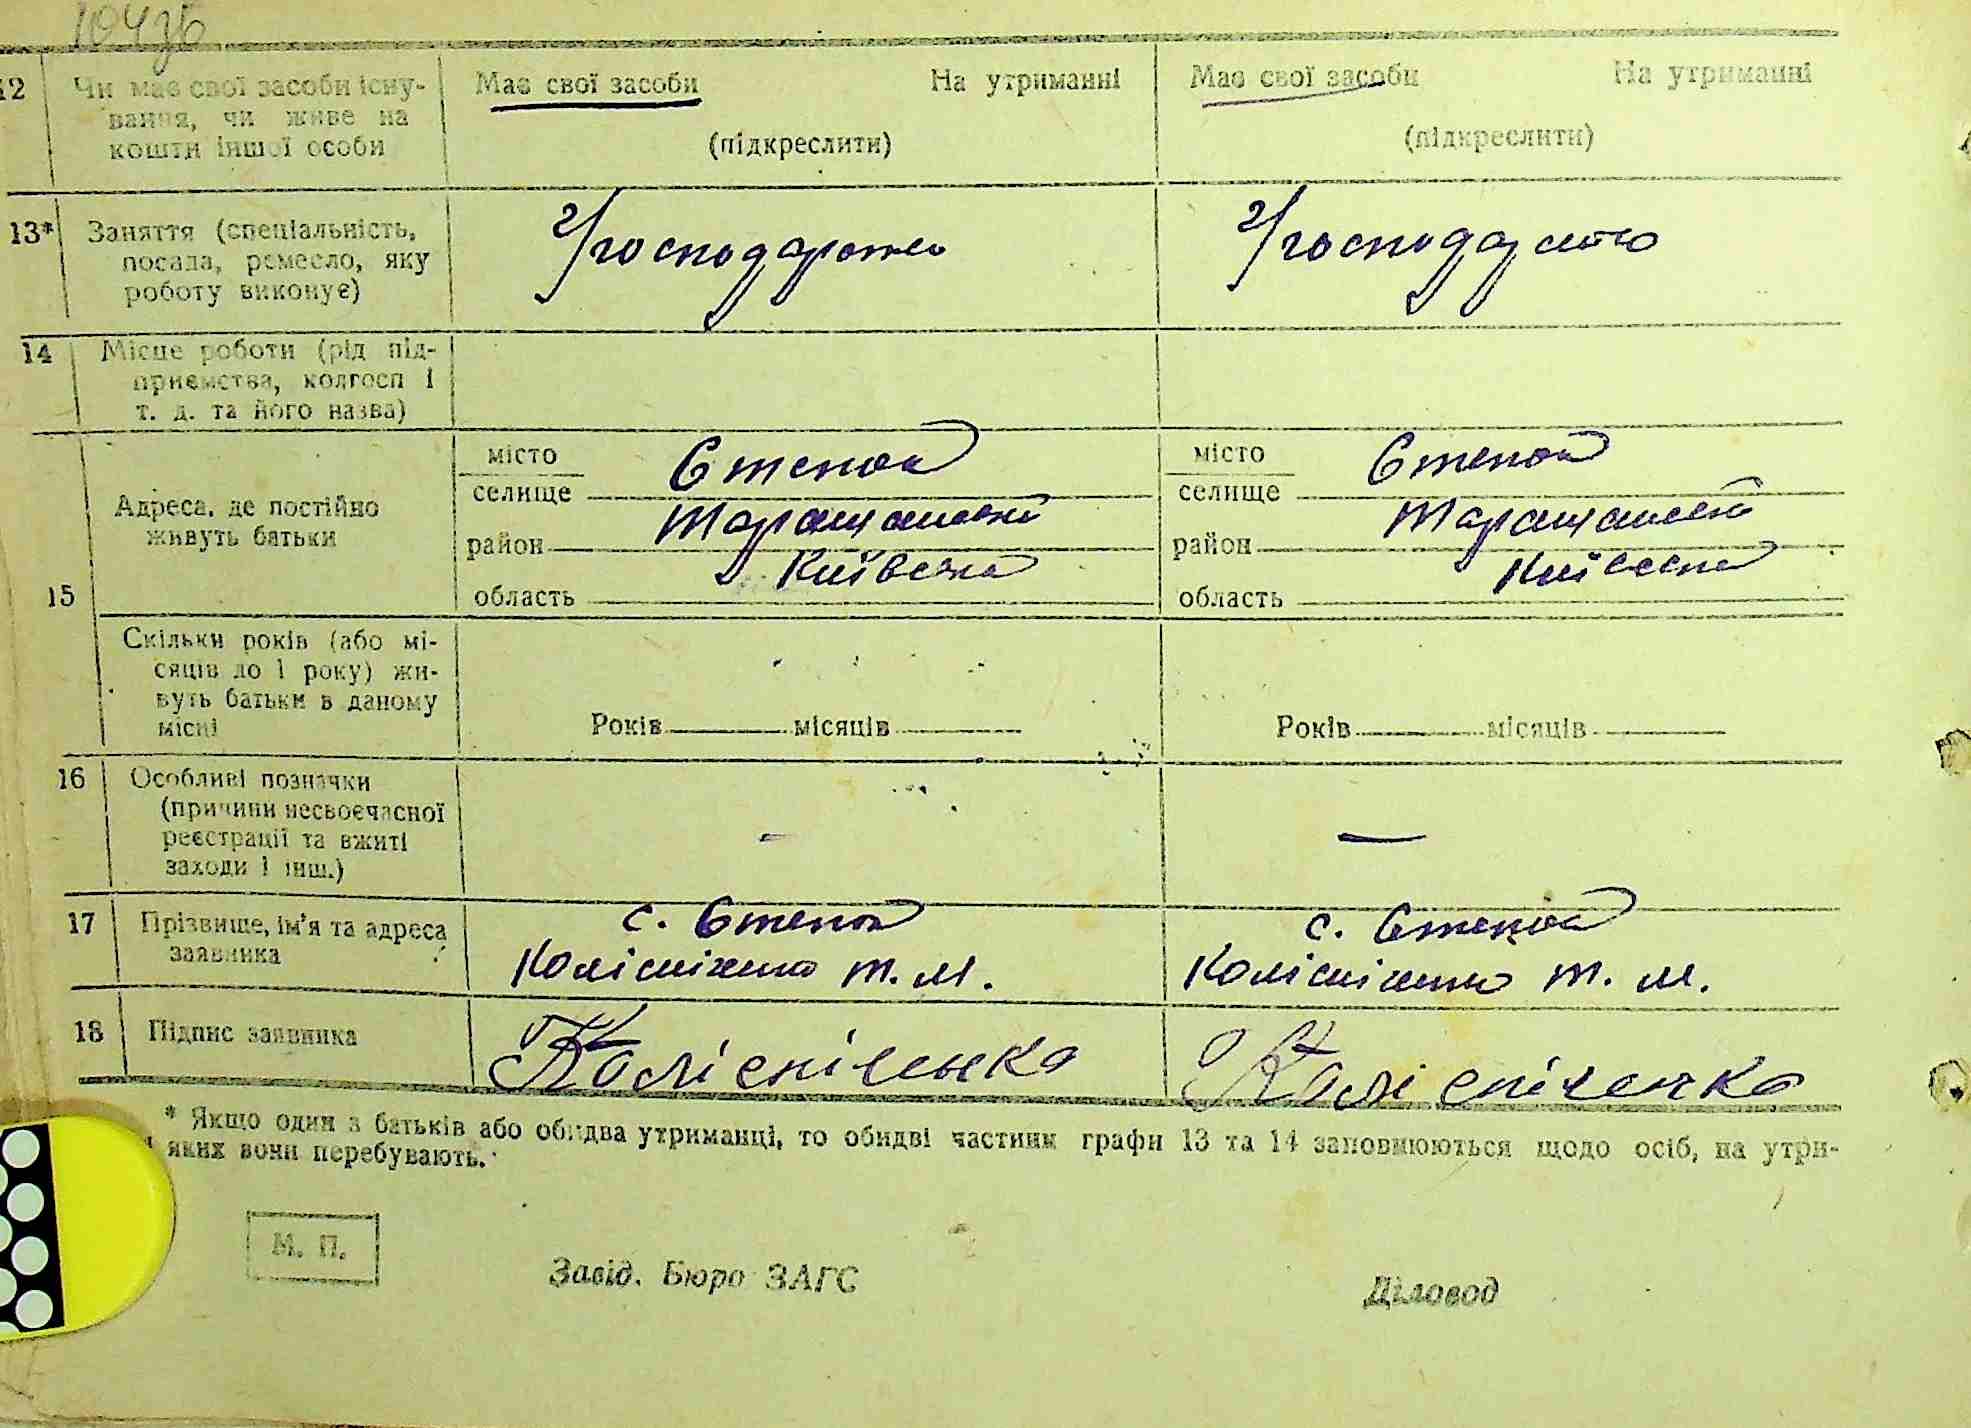 12 Чи має свої засоби існу- Має свої засоби На утриманні Має свої засоби На утриманні
вання, чи живе на
кошти іншої особи (підкреслити) (підкреслити)
13* Заняття (спеціальність,
посада, ремесло, яку
роботу виконує)
14 Місце роботи (рід під-
приємства, колгосп і
т. д. та його назва)
15 Адреса, де постійно
живуть батьки
місто Степок місто Степок
селище селище
район Таращанський район Таращанський
область Київська область Київська
Скільки років (або мі-
сяців до 1 року) жи-
вуть батьки в даному
місці Років місяців Років місяців
16 Особливі позначки
(причини несвоєчасної
реєстрації та вжиті — —
заходи і інш.)
17 Прізвище, ім'я та адреса с. Степок с. Степок
заявника Колісніченко Т. М. Колісніченко Т. М.
18 Підпис заявника Колісніченко Колісніченко
* Якщо один з батьків або обидва утриманці, то обидві частини графи 13 та 14 заповнюються щодо осіб, на утри-
яких вони перебувають.
М. П.
Завід. Бюро ЗАГС Діловод